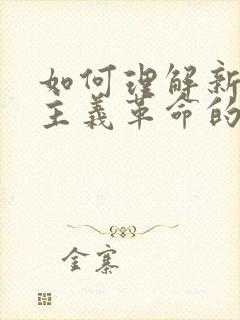 如何理解新
主义革命的
金寨